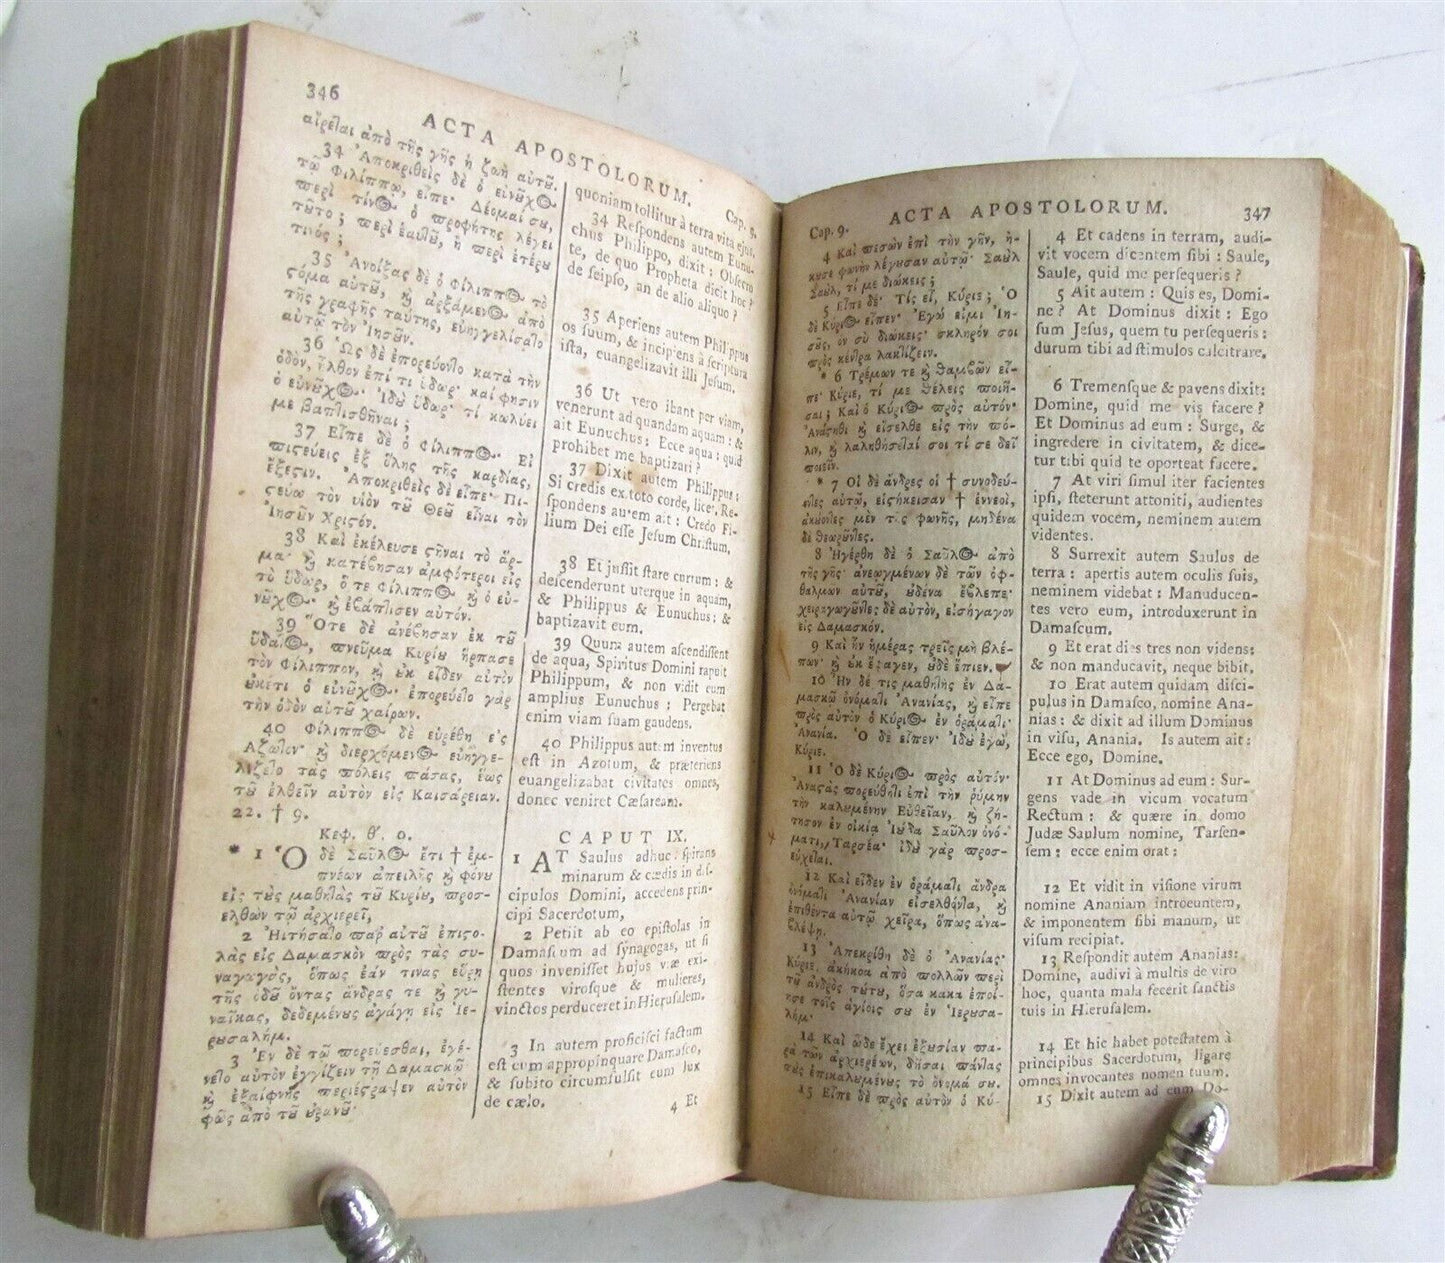 346
ACTA APOSTOLORUM.
Cap. 9.
αἴρεται ἀπὸ τῆς γῆς ἡ ζωὴ αὐτοῦ.
34 Ἀποκριθεὶς δὲ ὁ εὐνοῦχος
τῷ Φιλίππῳ, εἶπε· Δέομαί σου,
περὶ τίνος ὁ προφήτης λέγει
τοῦτο; περὶ ἑαυτοῦ, ἢ περὶ ἑτέρου
τινός;
35 Ἀνοίξας δὲ ὁ Φίλιππος τὸ
στόμα αὑτοῦ, καὶ ἀρξάμενος ἀπὸ
τῆς γραφῆς ταύτης, εὐηγγελίσατο
αὐτῷ τὸν Ἰησοῦν.
36 Ὡς δὲ ἐπορεύοντο κατὰ τὴν
ὁδὸν, ἦλθον ἐπί τι ὕδωρ· καί φησιν
ὁ εὐνοῦχος· Ἰδοὺ ὕδωρ· τί κωλύει
με βαπτισθῆναι;
37 Εἶπε δὲ ὁ Φίλιππος· Εἰ
πιστεύεις ἐξ ὅλης τῆς καρδίας,
ἔξεστιν. Ἀποκριθεὶς δὲ εἶπε· Πι-
στεύω τὸν υἱὸν τοῦ Θεοῦ εἶναι τὸν
Ἰησοῦν Χριστόν.
38 Καὶ ἐκέλευσε στῆναι τὸ ἅρ-
μα· καὶ κατέβησαν ἀμφότεροι εἰς
τὸ ὕδωρ, ὅ τε Φίλιππος καὶ ὁ εὐ-
νοῦχος· καὶ ἐβάπτισεν αὐτόν.
39 Ὅτε δὲ ἀνέβησαν ἐκ τοῦ
ὕδατος, πνεῦμα Κυρίου ἥρπασε
τὸν Φίλιππον, καὶ οὐκ εἶδεν αὐτὸν
οὐκέτι ὁ εὐνοῦχος· ἐπορεύετο γὰρ
τὴν ὁδὸν αὑτοῦ χαίρων.
40 Φίλιππος δὲ εὑρέθη εἰς
Ἄζωτον· καὶ διερχόμενος εὐηγγε-
λίζετο τὰς πόλεις πάσας, ἕως
τοῦ ἐλθεῖν αὐτὸν εἰς Καισάρειαν.
22. † 9.
Κεφ. θ'. 9.
* 1 Ὁ δὲ Σαῦλος ἔτι † ἐμ-
πνέων ἀπειλῆς καὶ φόνου
εἰς τοὺς μαθητὰς τοῦ Κυρίου, προσ-
ελθὼν τῷ ἀρχιερεῖ,
2 ᾘτήσατο παρ' αὐτοῦ ἐπιστο-
λὰς εἰς Δαμασκὸν πρὸς τὰς συ-
ναγωγὰς, ὅπως ἐάν τινας εὕρῃ
τῆς ὁδοῦ ὄντας ἄνδρας τε καὶ γυ-
ναῖκας, δεδεμένους ἀγάγῃ εἰς Ἱε-
ρουσαλήμ.
3 Ἐν δὲ τῷ πορεύεσθαι, ἐγέ-
νετο αὐτὸν ἐγγίζειν τῇ Δαμασκῷ
καὶ ἐξαίφνης περιέστραψεν αὐτὸν
φῶς ἀπὸ τοῦ οὐρανοῦ·
quoniam tollitur à terra vita ejus.
34 Reſpondens autem Eunu-
chus Philippo, dixit: Obſecro
te, de quo Propheta dicit hoc?
de ſeipſo, an de alio aliquo?
35 Aperiens autem Philippus
os ſuum, & incipiens à ſcriptura
iſta, euangelizavit illi Jeſum.
36 Ut vero ibant per viam,
venerunt ad quandam aquam: &
ait Eunuchus: Ecce aqua: quid
prohibet me baptizari?
37 Dixit autem Philippus:
Si credis ex toto corde, licet. Re-
ſpondens autem ait: Credo Fi-
lium Dei eſſe Jeſum Chriſtum.
38 Et juſſit ſtare currum: &
deſcenderunt uterque in aquam,
& Philippus & Eunuchus: &
baptizavit eum.
39 Quum autem aſcendiſſent
de aqua, Spiritus Domini rapuit
Philippum, & non vidit eum
amplius Eunuchus: Pergebat
enim viam ſuam gaudens.
40 Philippus autem inventus
eſt in Azotum, & præteriens
euangelizabat civitates omnes,
donec veniret Cæſaream.
CAPUT IX.
1 AT Saulus adhuc ſpirans
minarum & cædis in diſ-
cipulos Domini, accedens prin-
cipi Sacerdotum,
2 Petiit ab eo epiſtolas in
Damaſcum ad ſynagogas, ut ſi
quos inveniſſet hujus viæ exi-
ſtentes viroſque & mulieres,
vinctos perduceret in Hieruſalem.
3 In autem proficiſci factum
eſt eum appropinquare Damaſco,
& ſubito circumfulſit eum lux
de cælo.
4 Et
Cap. 9.
ACTA APOSTOLORUM.
347
4 Καὶ πεσὼν ἐπὶ τὴν γῆν, ἤ-
κουσε φωνὴν λέγουσαν αὐτῷ· Σαοὺλ
Σαοὺλ, τί με διώκεις;
5 Εἶπε δέ· Τίς εἶ, Κύριε; Ὁ
δὲ Κύριος εἶπεν· Ἐγώ εἰμι Ἰη-
σοῦς, ὃν σὺ διώκεις· σκληρόν σοι
πρὸς κέντρα λακτίζειν.
* 6 Τρέμων τε καὶ θαμβῶν εἶ-
πε· Κύριε, τί με θέλεις ποιῆ-
σαι; Καὶ ὁ Κύριος πρὸς αὐτόν·
Ἀνάστηθι καὶ εἴσελθε εἰς τὴν πό-
λιν, καὶ λαληθήσεταί σοι τί σε δεῖ
ποιεῖν.
* 7 Οἱ δὲ ἄνδρες οἱ † συνοδεύ-
οντες αὐτῷ, εἱστήκεισαν † ἐννεοὶ,
ἀκούοντες μὲν τῆς φωνῆς, μηδένα
δὲ θεωροῦντες.
8 Ἠγέρθη δὲ ὁ Σαῦλος ἀπὸ
τῆς γῆς· ἀνεῳγμένων δὲ τῶν ὀφ-
θαλμῶν αὐτοῦ, οὐδένα ἔβλεπε·
χειραγωγοῦντες δὲ αὐτὸν, εἰσήγαγον
εἰς Δαμασκόν.
9 Καὶ ἦν ἡμέρας τρεῖς μὴ βλέ-
πων· καὶ οὐκ ἔφαγεν, οὐδὲ ἔπιεν.
10 Ἦν δέ τις μαθητὴς ἐν Δα-
μασκῷ ὀνόματι Ἀνανίας, καὶ εἶπε
πρὸς αὐτὸν ὁ Κύριος ἐν ὁράματι·
Ἀνανία. Ὁ δὲ εἶπεν· Ἰδοὺ ἐγὼ,
Κύριε.
11 Ὁ δὲ Κύριος πρὸς αὐτόν·
Ἀναστὰς πορεύθητι ἐπὶ τὴν ῥύμην
τὴν καλουμένην Εὐθεῖαν, καὶ ζή-
τησον ἐν οἰκίᾳ Ἰούδα Σαῦλον ὀνό-
ματι, Ταρσέα· ἰδοὺ γὰρ προσ-
εύχεται.
12 Καὶ εἶδεν ἐν ὁράματι ἄνδρα
ὀνόματι Ἀνανίαν εἰσελθόντα, καὶ
ἐπιθέντα αὐτῷ χεῖρα, ὅπως ἀνα-
βλέψῃ.
13 Ἀπεκρίθη δὲ ὁ Ἀνανίας·
Κύριε, ἀκήκοα ἀπὸ πολλῶν περὶ
τοῦ ἀνδρὸς τούτου, ὅσα κακὰ ἐποί-
ησε τοῖς ἁγίοις σου ἐν Ἱερουσα-
λήμ.
14 Καὶ ὧδε ἔχει ἐξουσίαν πα-
ρὰ τῶν ἀρχιερέων, δῆσαι πάντας
τοὺς ἐπικαλουμένους τὸ ὄνομά σου.
15 Εἶπε δὲ πρὸς αὐτὸν ὁ Κύ-
4 Et cadens in terram, audi-
vit vocem dicentem ſibi: Saule,
Saule, quid me perſequeris?
5 Ait autem: Quis es, Domi-
ne? At Dominus dixit: Ego
ſum Jeſus, quem tu perſequeris:
durum tibi ad ſtimulos calcitrare.
6 Tremenſque & pavens dixit:
Domine, quid me vis facere?
Et Dominus ad eum: Surge, &
ingredere in civitatem, & dice-
tur tibi quid te oporteat facere.
7 At viri ſimul iter facientes
ipſi, ſteterunt attoniti, audientes
quidem vocem, neminem autem
videntes.
8 Surrexit autem Saulus de
terra: apertis autem oculis ſuis,
neminem videbat: Manuducen-
tes vero eum, introduxerunt in
Damaſcum.
9 Et erat dies tres non videns:
& non manducavit, neque bibit.
10 Erat autem quidam diſci-
pulus in Damaſco, nomine Ana-
nias: & dixit ad illum Dominus
in viſu, Anania. Is autem ait:
Ecce ego, Domine.
11 At Dominus ad eum: Sur-
gens vade in vicum vocatum
Rectum: & quære in domo
Judæ Saulum nomine, Tarſen-
ſem: ecce enim orat:
12 Et vidit in viſione virum
nomine Ananiam introeuntem,
& imponentem ſibi manum, ut
viſum recipiat.
13 Reſpondit autem Ananias:
Domine, audivi à multis de viro
hoc, quanta mala fecerit ſanctis
tuis in Hieruſalem.
14 Et hic habet poteſtatem à
principibus Sacerdotum, ligare
omnes invocantes nomen tuum.
15 Dixit autem ad eum Do-